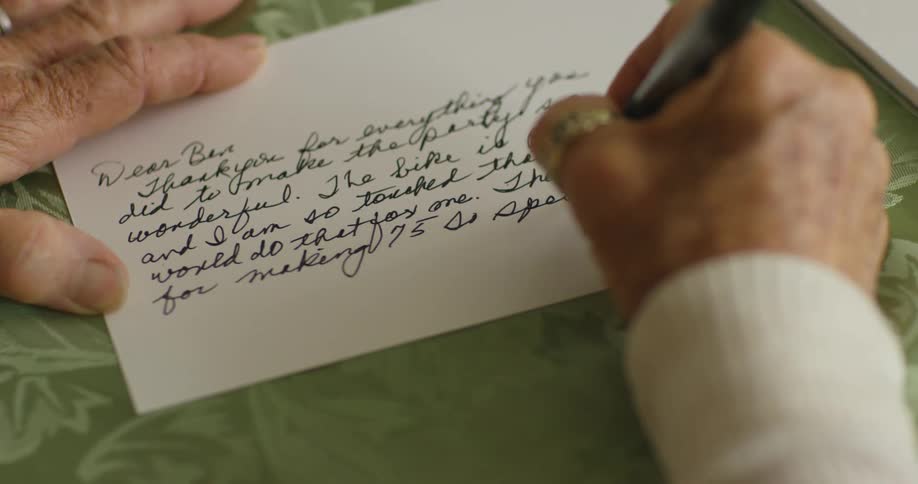 Dear Ben
Thankyou for everything you
did to make the party
wonderful. The bike is
and I am so touched
would do that for me.
for making 75 so